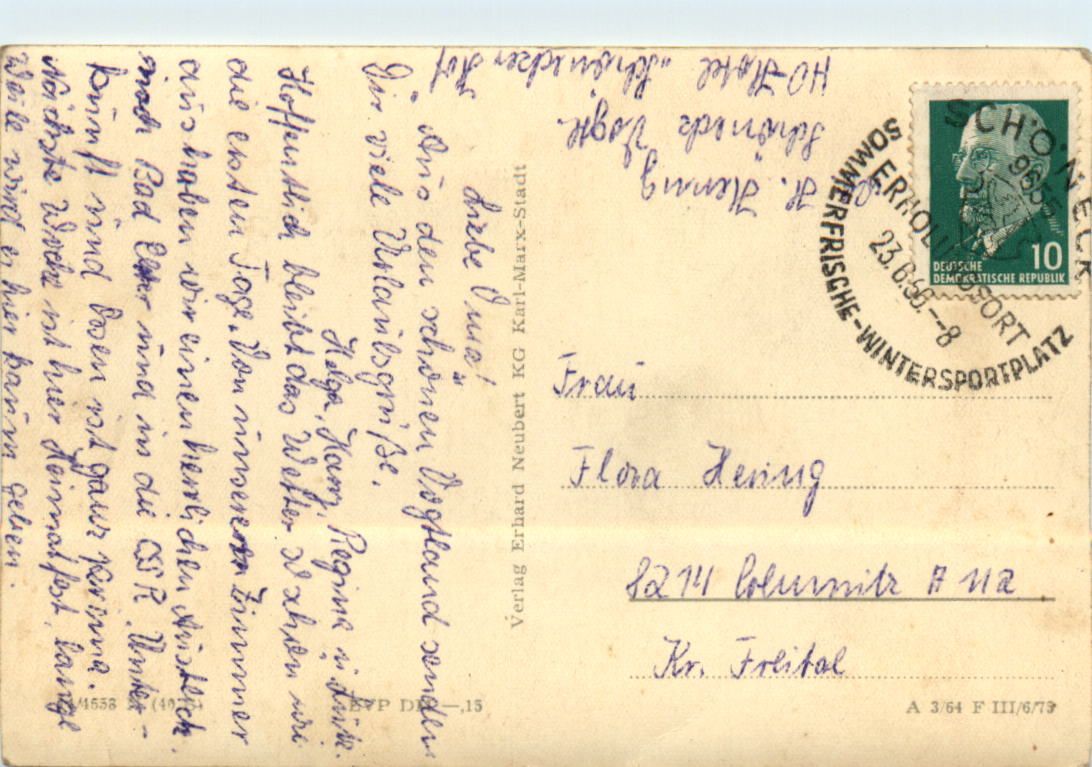 Liebe Oma!
Aus dem schönen Vogtland senden
Dir viele Urlaubsgrüße.
Helga, Hany, Regina u. Lutz.
Hoffentlich bleibt das Wetter so schön wie
die ersten Tage. Von unserem Zimmer
aus haben wir einen herrlichen Ausblick
nach Bad Elster und in die ČSSR. Unter-
kunft und Essen ist ganz prima.
Nächste Woche ist hier Heimatfest, lange
Weile wird es hier kaum geben.
H. Hering
Schöneck Vogtl.
HO-Hotel "Schönecker Hof"
Verlag Erhard Neubert KG Karl-Marx-Stadt
SCHÖNECK
9655
ERHOLUNGSORT
23.6.66.--8
SOMMERFRISCHE-WINTERSPORTPLATZ
10
DEUTSCHE
DEMOKRATISCHE REPUBLIK
Frau
Flora Hering
8214 Colmnitz A 112
Kr. Freital
EVP DM —,15
A 3/64 F III/6/73